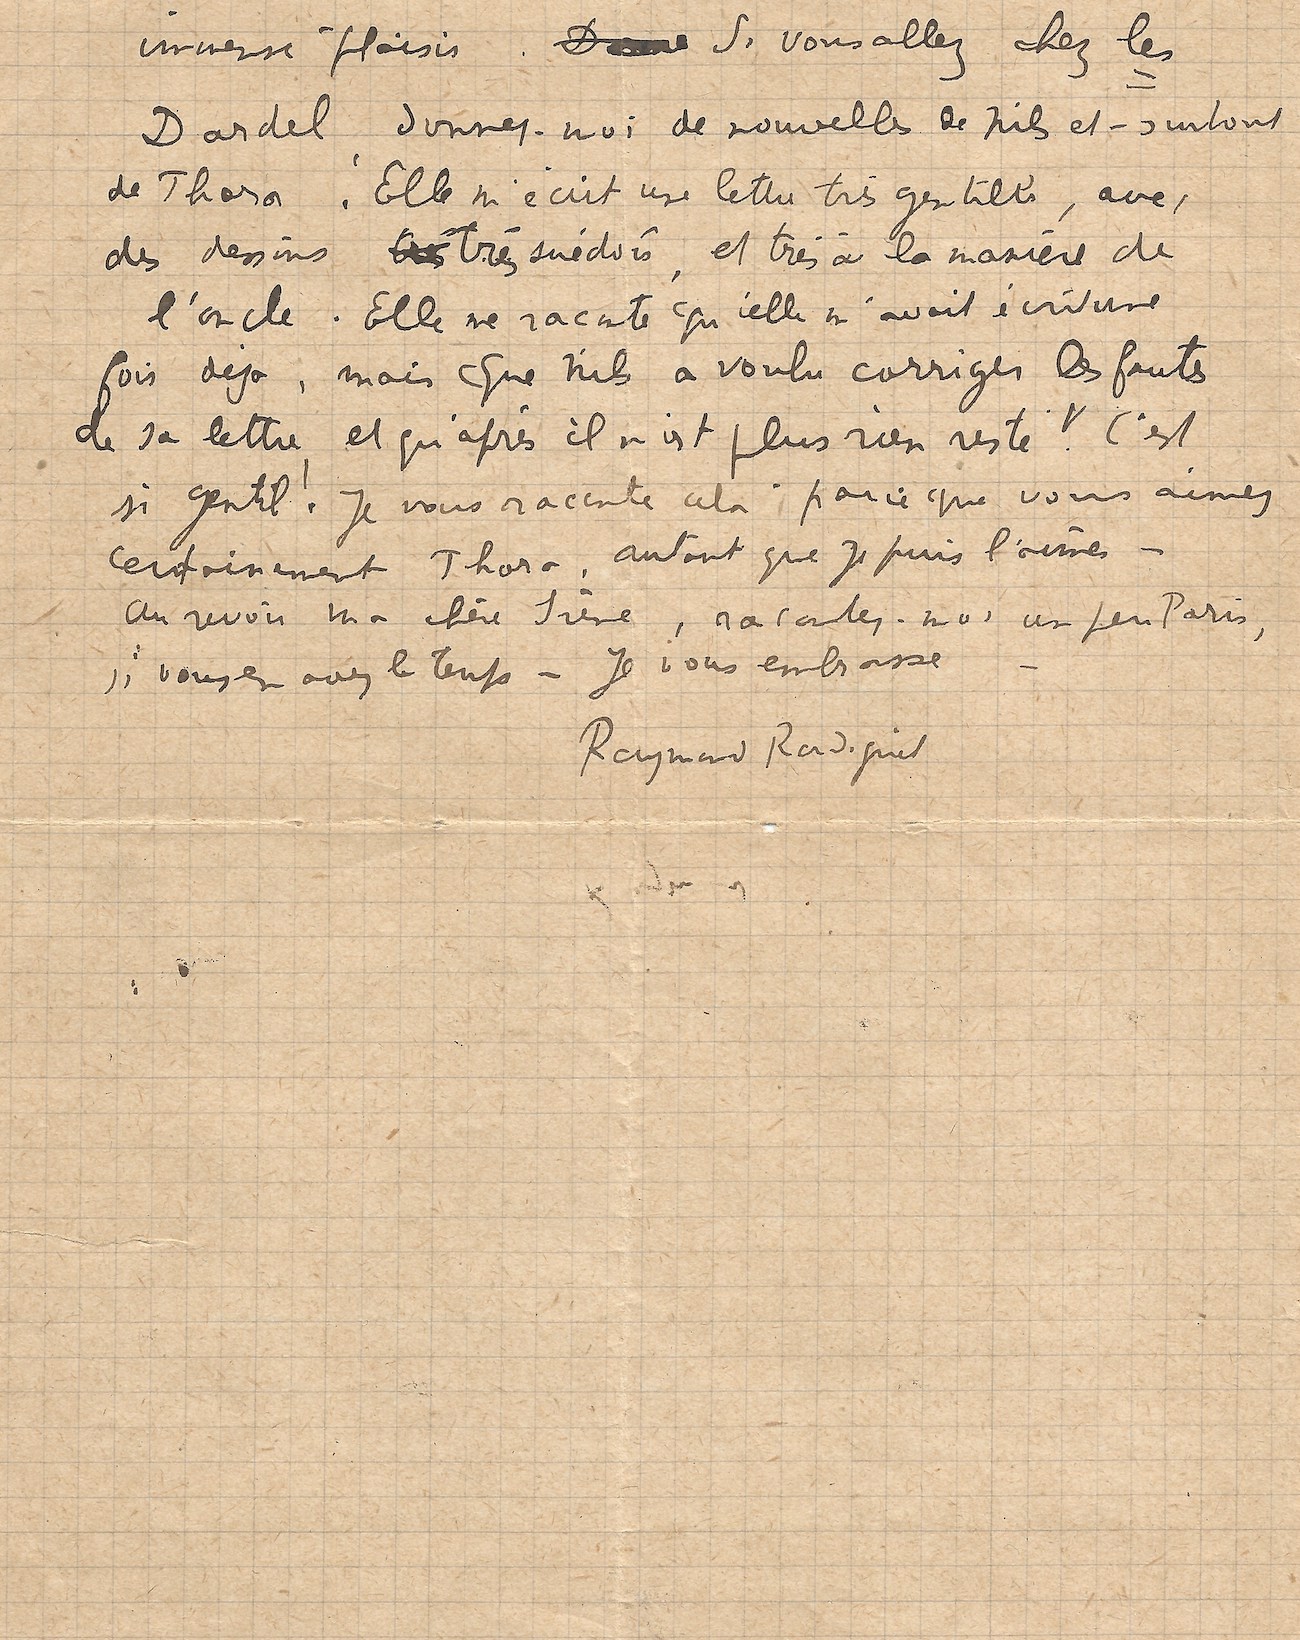 immense plaisir. Si vous allez chez les
Dardel, donnez-moi de nouvelles de Nils et - surtout
de Thora. Elle m'écrit une lettre très gentille, avec
des dessins très suédois, et très à la manière de
l'oncle. Elle me raconte qu'elle m'avait écrit une
fois déjà, mais que Nils a voulu corriger les fautes
de sa lettre, et qu'après il n'est plus rien resté! C'est
si gentil! Je vous raconte cela parce que vous aimez
certainement Thora, autant que je puis l'aimer -
Au revoir ma chère Irène, racontez-moi un peu Paris,
si vous en avez le temps - Je vous embrasse -
Raymond Radiguet